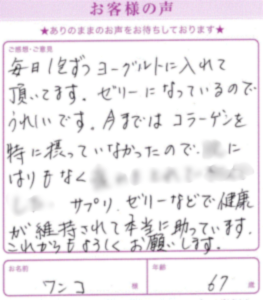 お客様の声
★ありのままのお声をお待ちしております★
ご感想・ご意見
毎日1包ずつヨーグルトに入れて
頂いてます。ゼリーになっているので
うれしいです。今まではコラーゲンを
特に摂っていなかったので、に
はりもなく
サプリ、ゼリーなどで健康
が維持されて本当に助っています。
これからもよろしくお願いします。
お名前
年齢
ワンコ 様 67 歳